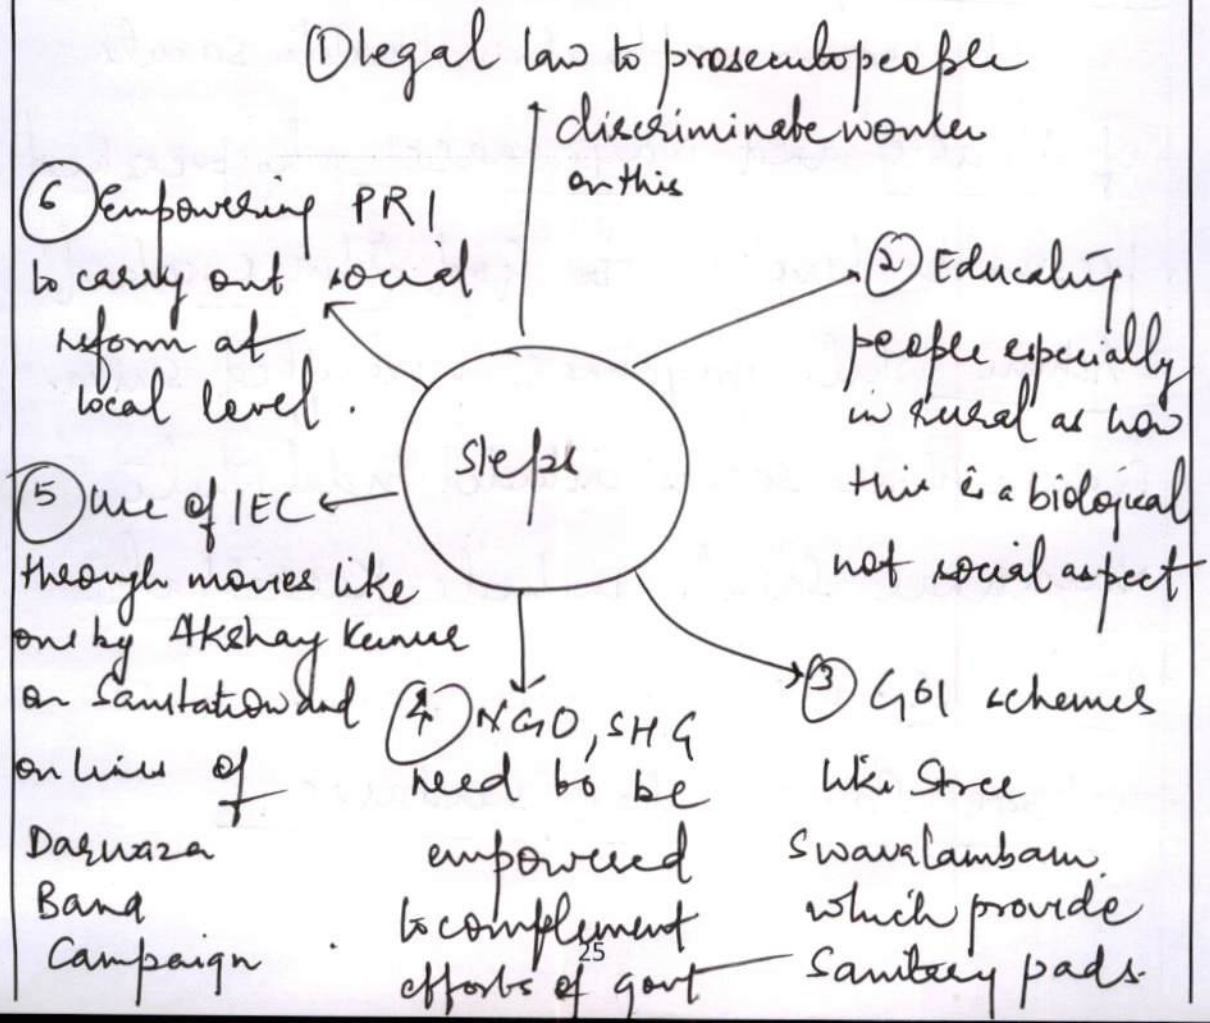 ① Legal law to prosecute people
discriminate women
on this
② Educating
people especially
in rural as how
this is a biological
not social aspect
③ GOI schemes
like Stree
Swavalamban
which provide
Sanitary pads.
④ NGO, SHG
need to be
empowered
to complement
efforts of govt
⑤ Use of IEC
through movies like
one by Akshay Kumar
on Sanitation and
on lines of
Darwaza
Band
Campaign
⑥ Empowering PRI
to carry out social
reform at
local level.
Steps
25